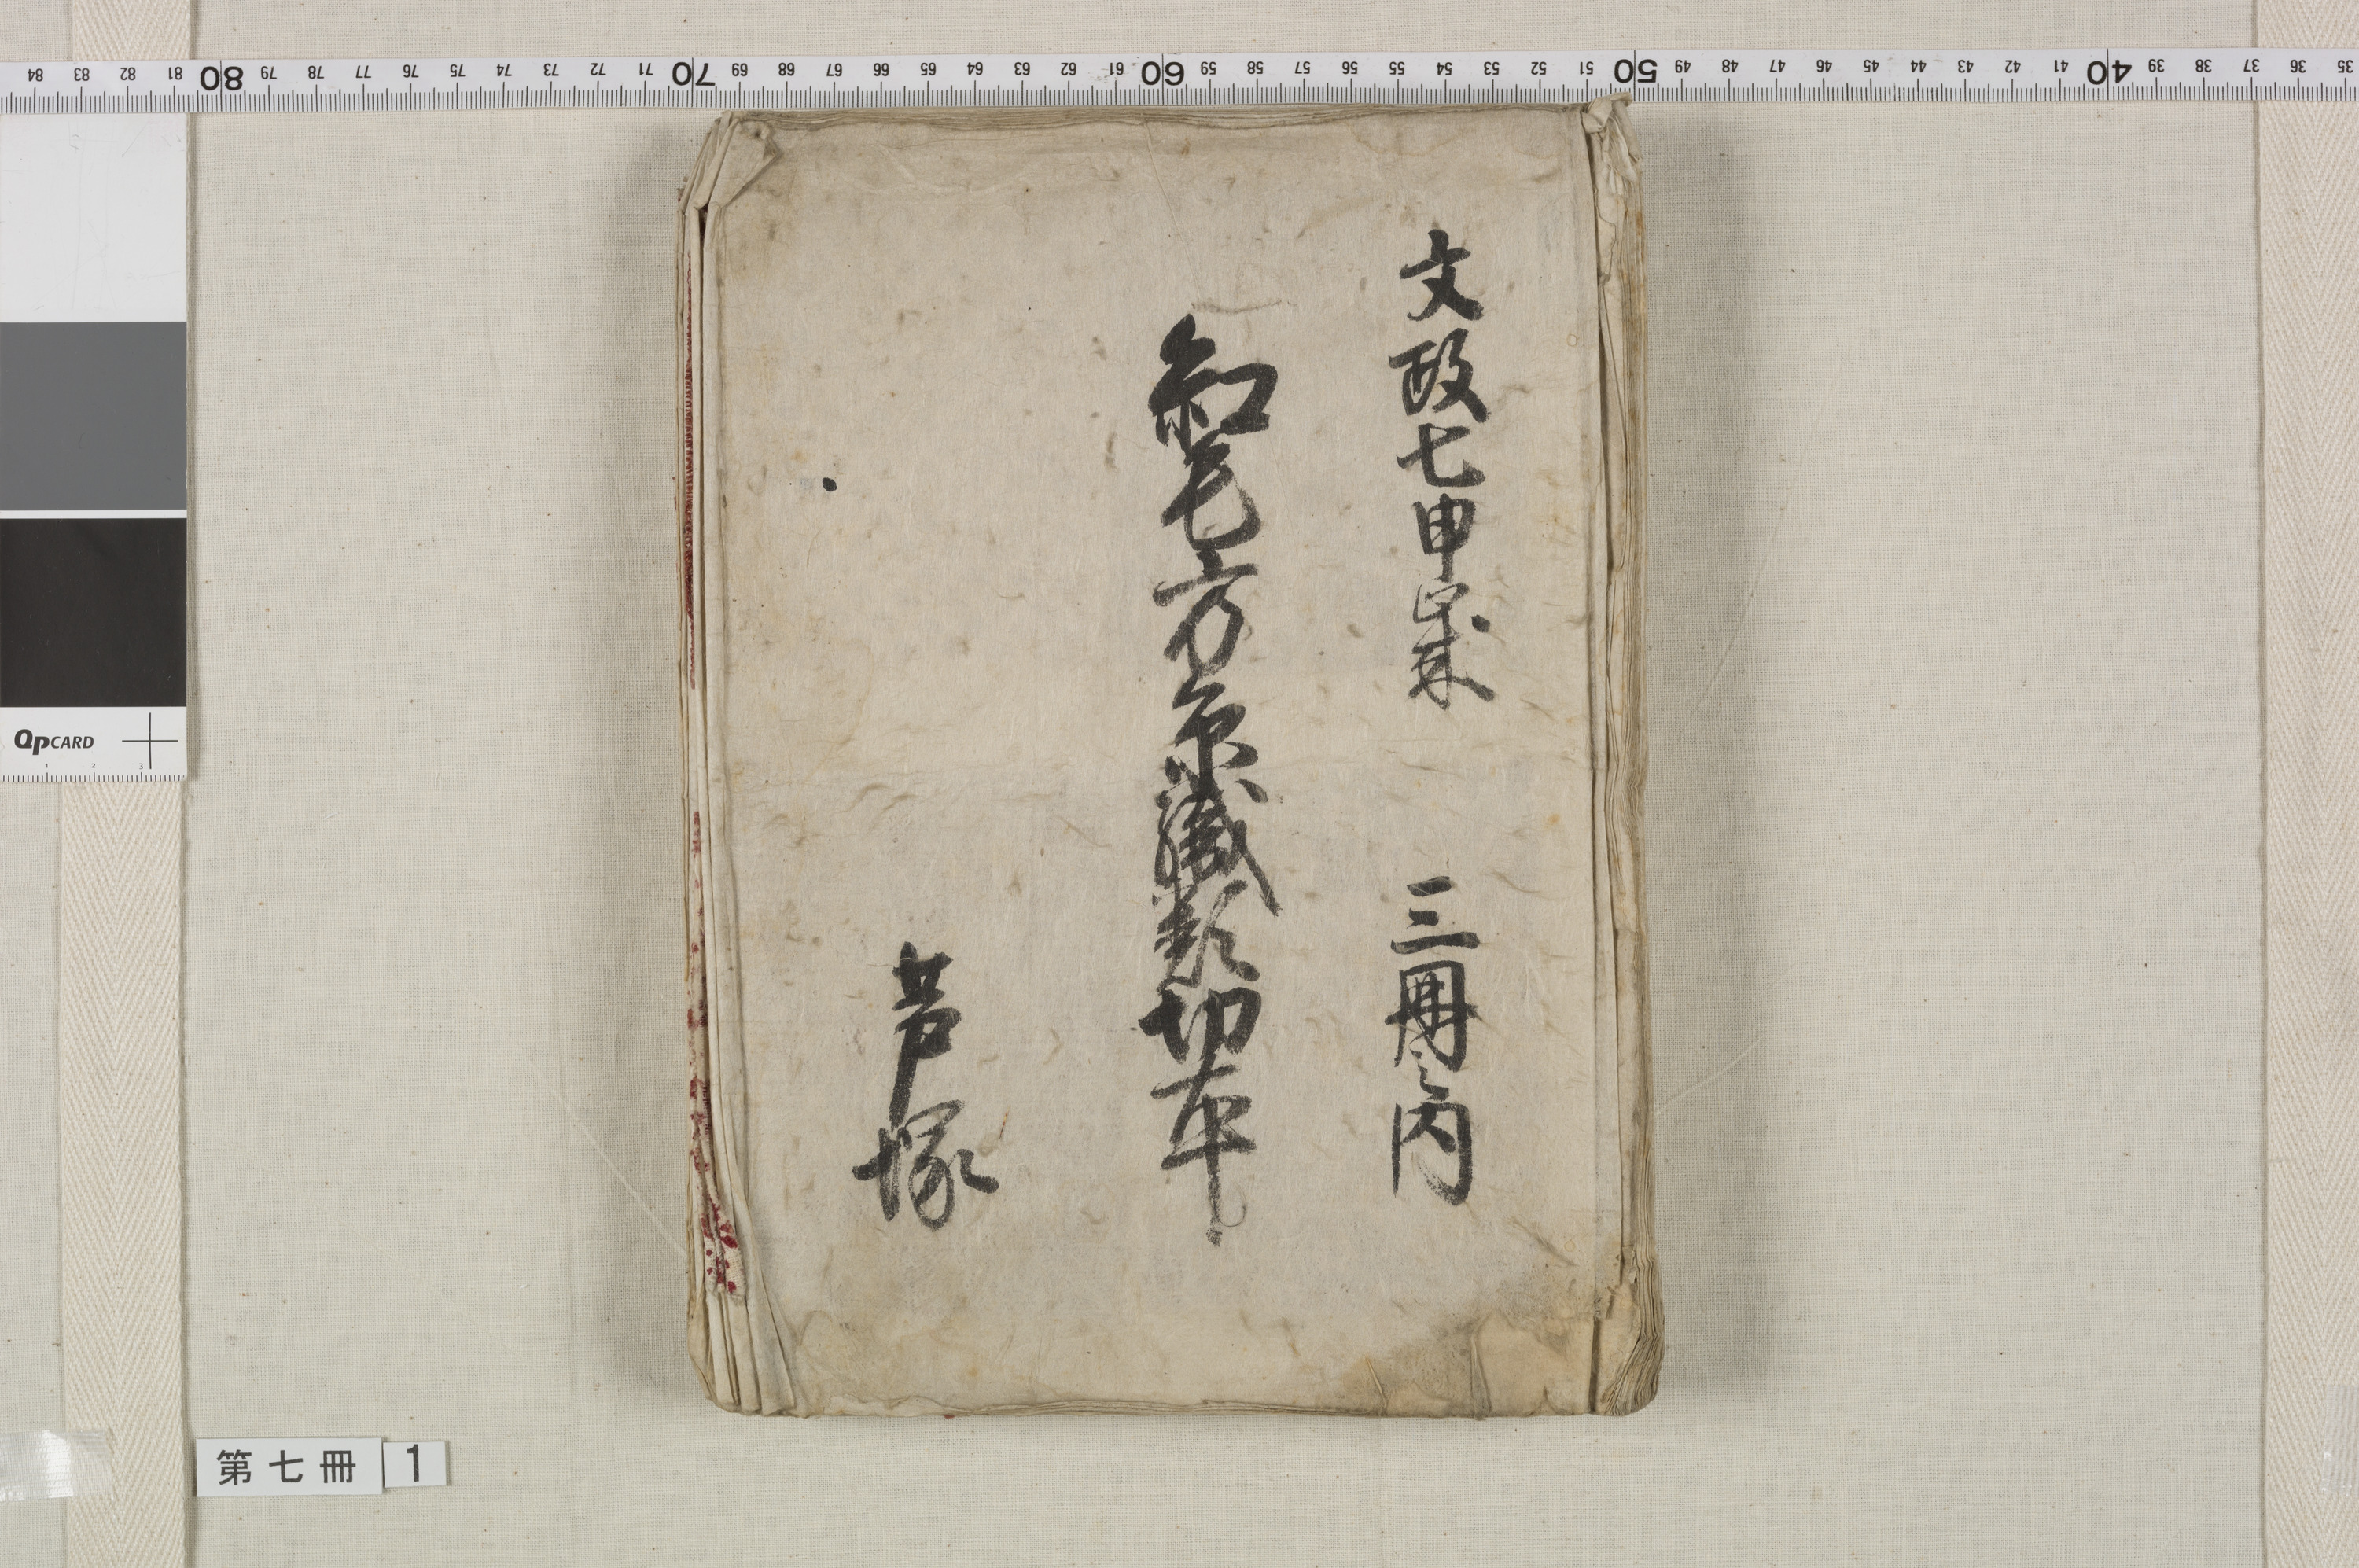 文政七申歳 三冊之内
紅毛方反織類切本
芦塚
第七冊 1
QPCARD
84 83 82 81 80 79 78 77 76 75 74 73 72 71 70 69 68 67 66 65 64 63 62 61 60 59 58 57 56 55 54 53 52 51 50 49 48 47 46 45 44 43 42 41 40 39 38 37 36 35
1 2 3